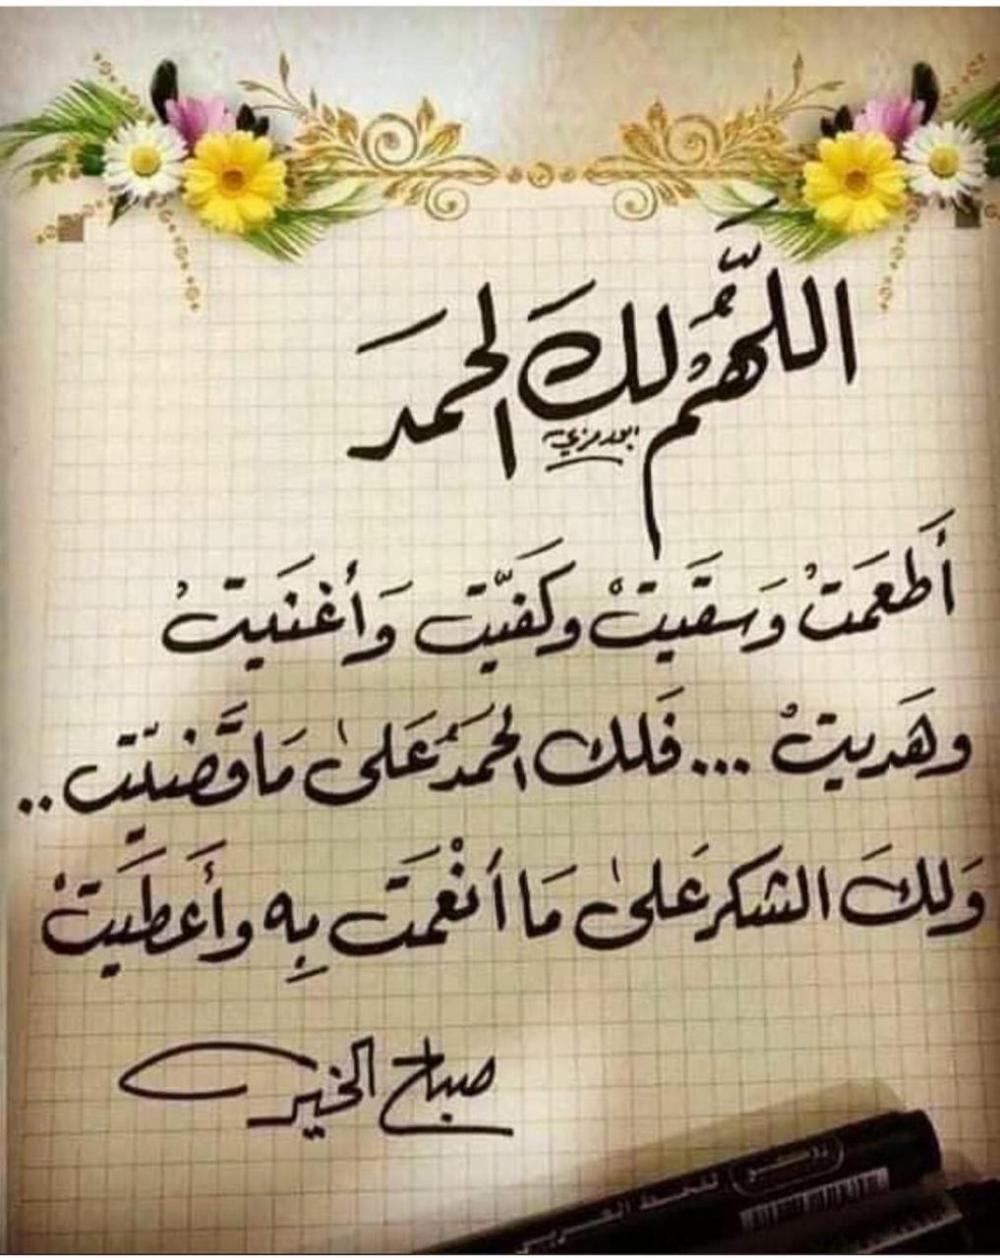 اللَّهُمَّ لكَ الحمدَ
أَطعَمتْ وَسقَيتْ وكَفيّت وَأغنَيتْ
وهَديتْ ... فَلك الحَمدُ عَلىٰ مَا قَضيّت ..
وَلكَ الشكر عَلىٰ مَا أنْعَمتَ بِه وأَعطَيتْ
صباح الخير
للخط العربي